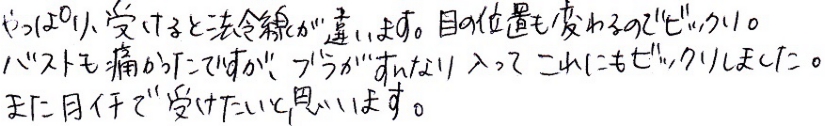 やっぱり、受けると法令線が違います。目の位置も変わるのでビックリ。
バストも痛かったですが、ブラがすんなり入ってこれにもビックリしました。
また月イチで受けたいと思います。